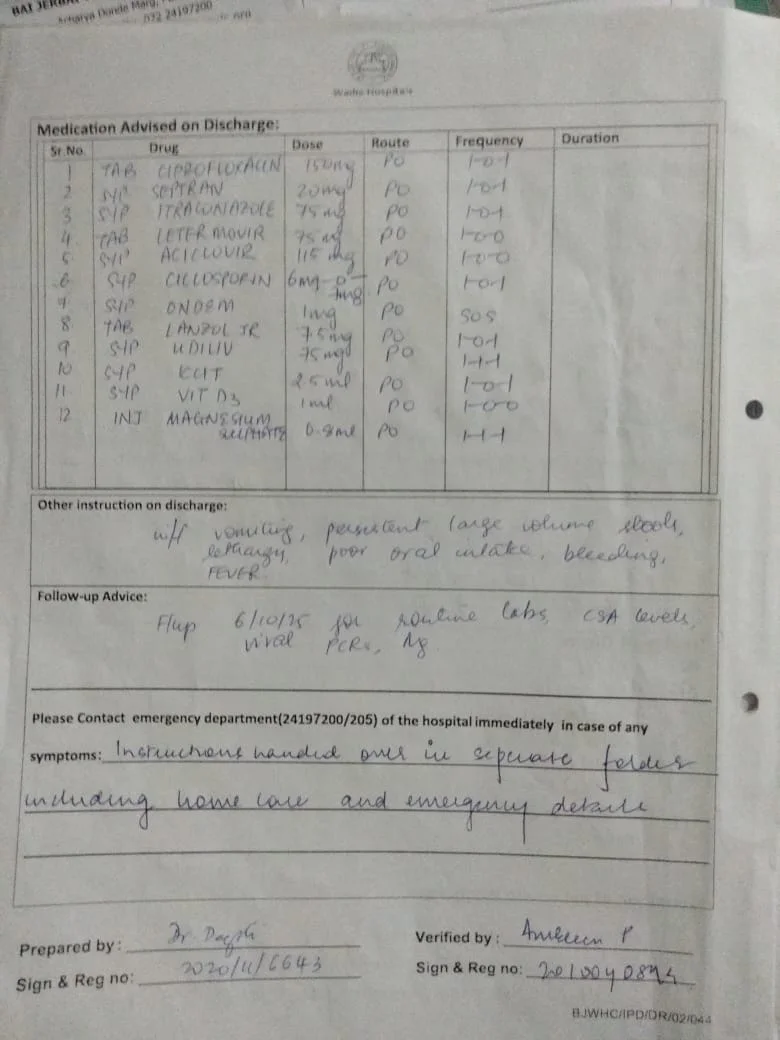 BAI JERBAI
Acharya Donde Marg,
022 24197200
Wadia Hospitals
Medication Advised on Discharge:
Sr.No. Drug Dose Route Frequency Duration
1 TAB CIPROFLOXACIN 150mg PO 1-0-1
2 SYP SEPTRAN 20mg PO 1-0-1
3 SYP ITRACONAZOLE 75mg PO 1-0-1
4. TAB LETERMOVIR 75mg PO 1-0-0
5. SYP ACICLOVIR 115 mg PO 1-0-0
6 SYP CICLOSPORIN 6mg-0-7mg PO 1-0-1
7 SYP ONDEM 1mg PO SOS
8 TAB LANZOL JR 7.5mg PO 1-0-1
9 SYP UDILIV 75mg PO 1-1-1
10 SYP 2.5ml PO 1-0-1
11 SYP VIT D3 1ml PO 1-0-0
12 INJ MAGNESIUM SULPHATE 0.8ml PO 1-1-1
Other instruction on discharge:
w/f vomiting, persistent large volume stools,
lethargy, poor oral intake, bleeding,
FEVER
Follow-up Advice:
F/up 6/10/25 for routine labs, CSA levels,
viral PCRs, Mg.
Please Contact emergency department(24197200/205) of the hospital immediately in case of any
symptoms: Instructions handed over in seperate folder
including home care and emergency details
Prepared by: Dr. Verified by:
Sign & Reg no: 2020/11/6643 Sign & Reg no:
BJWHC/IPD/DR/02/044